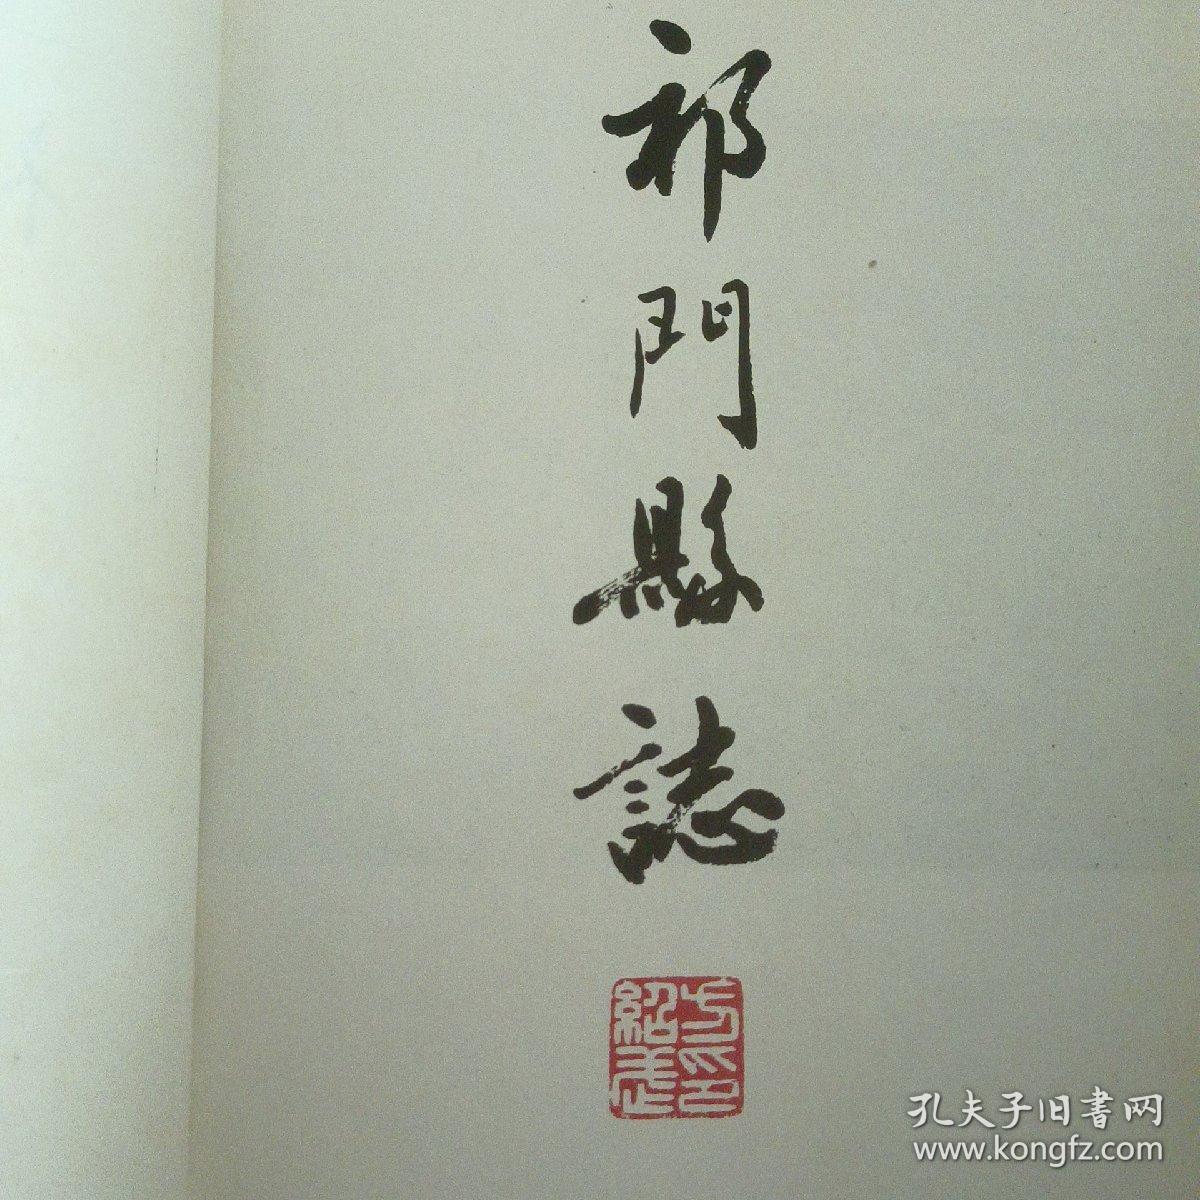 祁門縣誌
方印
紹武
孔夫子旧書网
www.kongfz.com